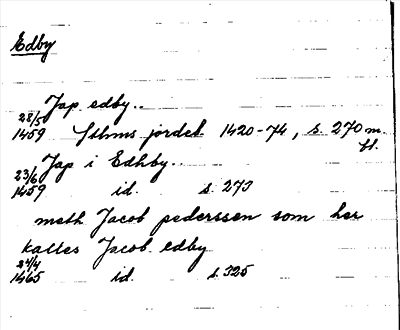 Edby
Jap edby..
28/5
1459 Sthms jordeb 1420-74, s. 270 m.
fl.
Jap i Edhby..
23/6
1459 id. s. 273
meth Jacob pederssen som her
kalles Jacob edby
24/4
1465 id. s. 325